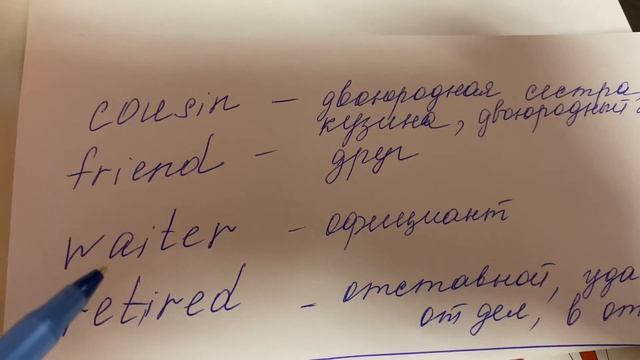 cousin – двоюродная сестра,
кузина, двоюродный
friend – друг
waiter – официант
retired – отставной,
отдел, в